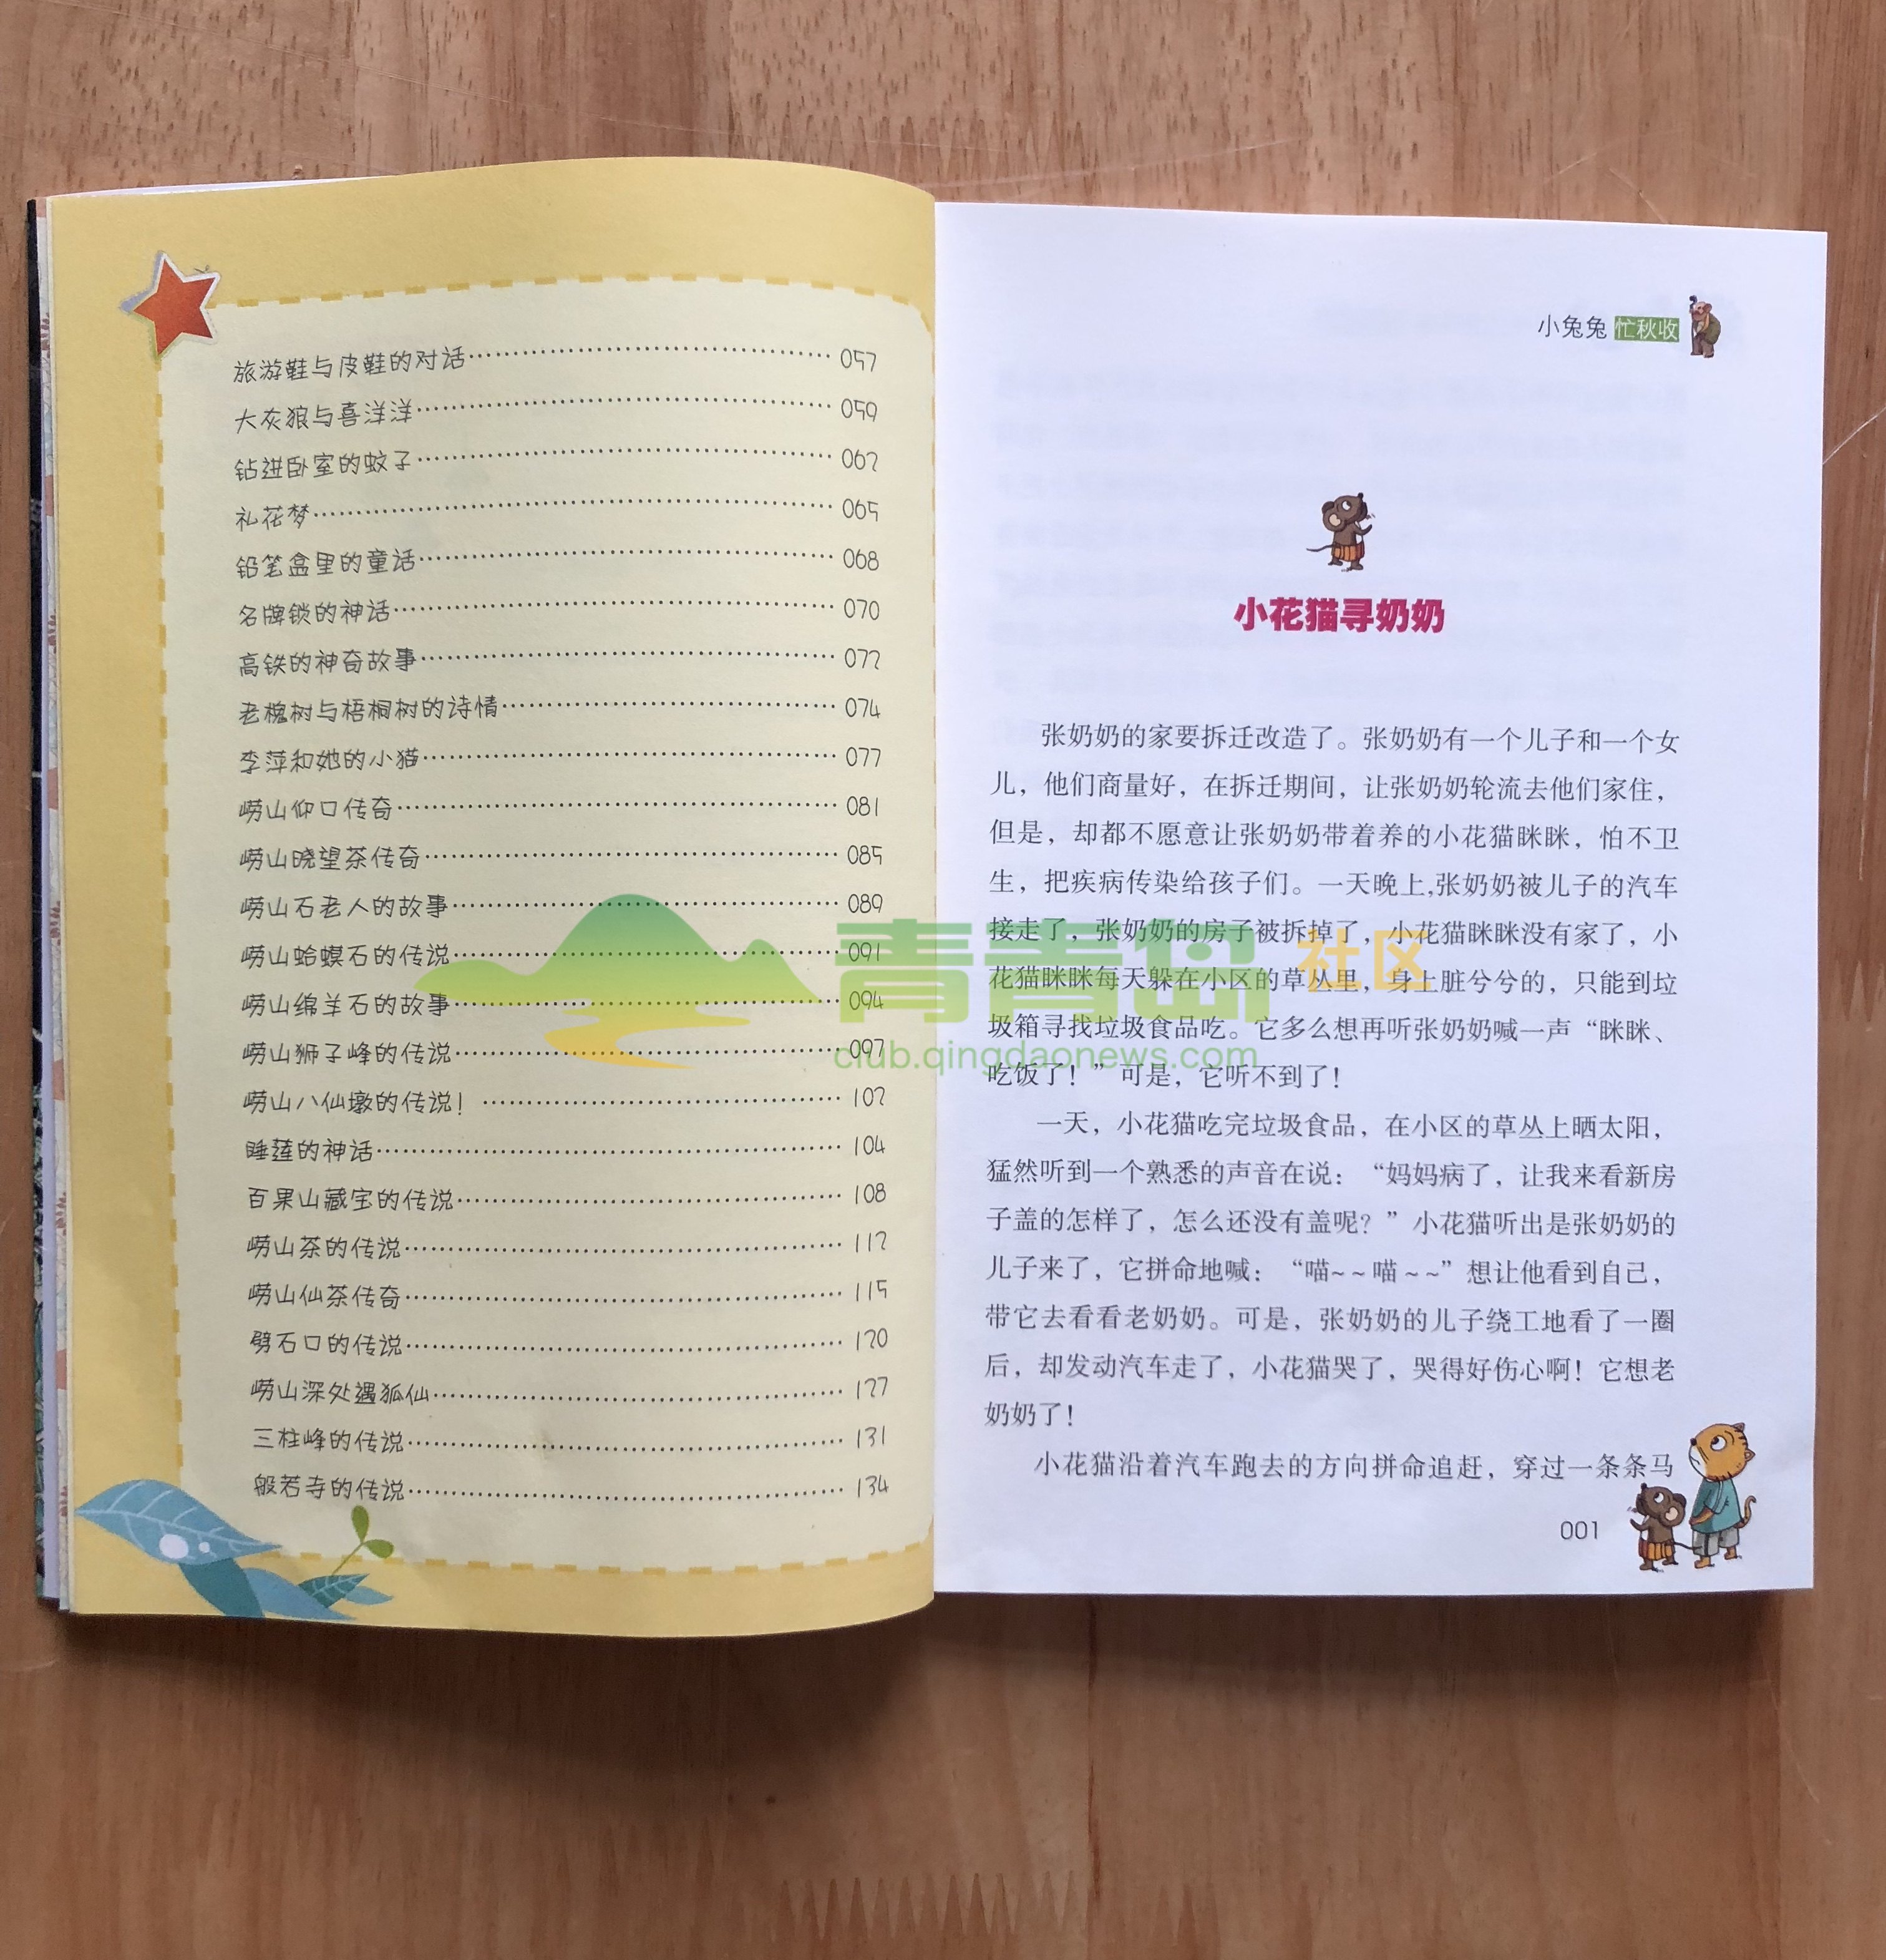 旅游鞋与皮鞋的对话……057
大灰狼与喜洋洋……059
钻进卧室的蚊子……062
礼花梦……065
铅笔盒里的童话……068
名牌锁的神话……070
高铁的神奇故事……072
老槐树与梧桐树的诗情……074
李萍和她的小猫……077
崂山仰口传奇……081
崂山晓望茶传奇……085
崂山石老人的故事……089
崂山蛤蟆石的传说……091
崂山绵羊石的故事……094
崂山狮子峰的传说……097
崂山八仙墩的传说！……102
睡莲的神话……104
百果山藏宝的传说……108
崂山茶的传说……112
崂山仙茶传奇……115
劈石口的传说……120
崂山深处遇狐仙……127
三柱峰的传说……131
般若寺的传说……134
小兔兔 忙秋收
小花猫寻奶奶
张奶奶的家要拆迁改造了。张奶奶有一个儿子和一个女
儿，他们商量好，在拆迁期间，让张奶奶轮流去他们家住，
但是，却都不愿意让张奶奶带着养的小花猫眯眯，怕不卫
生，把疾病传染给孩子们。一天晚上,张奶奶被儿子的汽车
接走了，张奶奶的房子被拆掉了，小花猫眯眯没有家了，小
花猫眯眯每天躲在小区的草丛里，身上脏兮兮的，只能到垃
圾箱寻找垃圾食品吃。它多么想再听张奶奶喊一声“眯眯、
吃饭了！”可是，它听不到了！
一天，小花猫吃完垃圾食品，在小区的草丛上晒太阳，
猛然听到一个熟悉的声音在说：“妈妈病了，让我来看新房
子盖的怎样了，怎么还没有盖呢？”小花猫听出是张奶奶的
儿子来了，它拼命地喊：“喵~~喵~~”想让他看到自己，
带它去看看老奶奶。可是，张奶奶的儿子绕工地看了一圈
后，却发动汽车走了，小花猫哭了，哭得好伤心啊！它想老
奶奶了！
小花猫沿着汽车跑去的方向拼命追赶，穿过一条条马
001
青青岛 社区
club.qingdaonews.com